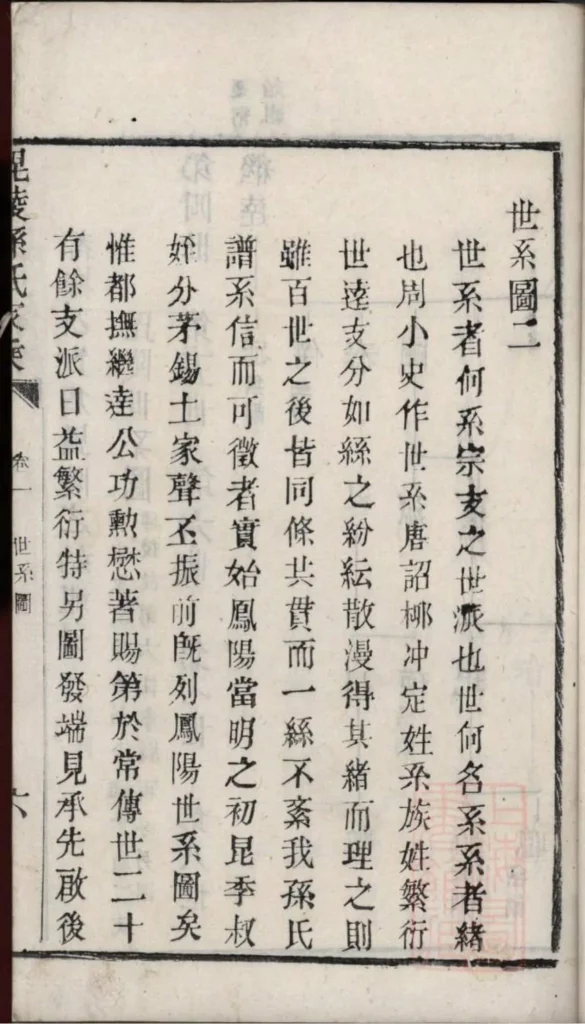 世系圖二
世系者何系宗支之世派也世何名系系者緒
也周小史作世系唐詔柳冲定姓系族姓繁衍
世逵支分如絲之紛紜散漫得其緒而理之則
雖百世之後皆同條共貫而一絲不紊我孫氏
譜系信而可徵者實始鳳陽當明之初昆季叔
姪分茅錫土家聲丕振前旣列鳳陽世系圖矣
惟都撫繼逵公功勳懋著賜第於常傳世二十
有餘支派日益繁衍特另圖發端見承先啟後
毘陵孫氏家乘
卷一
世系圖
六